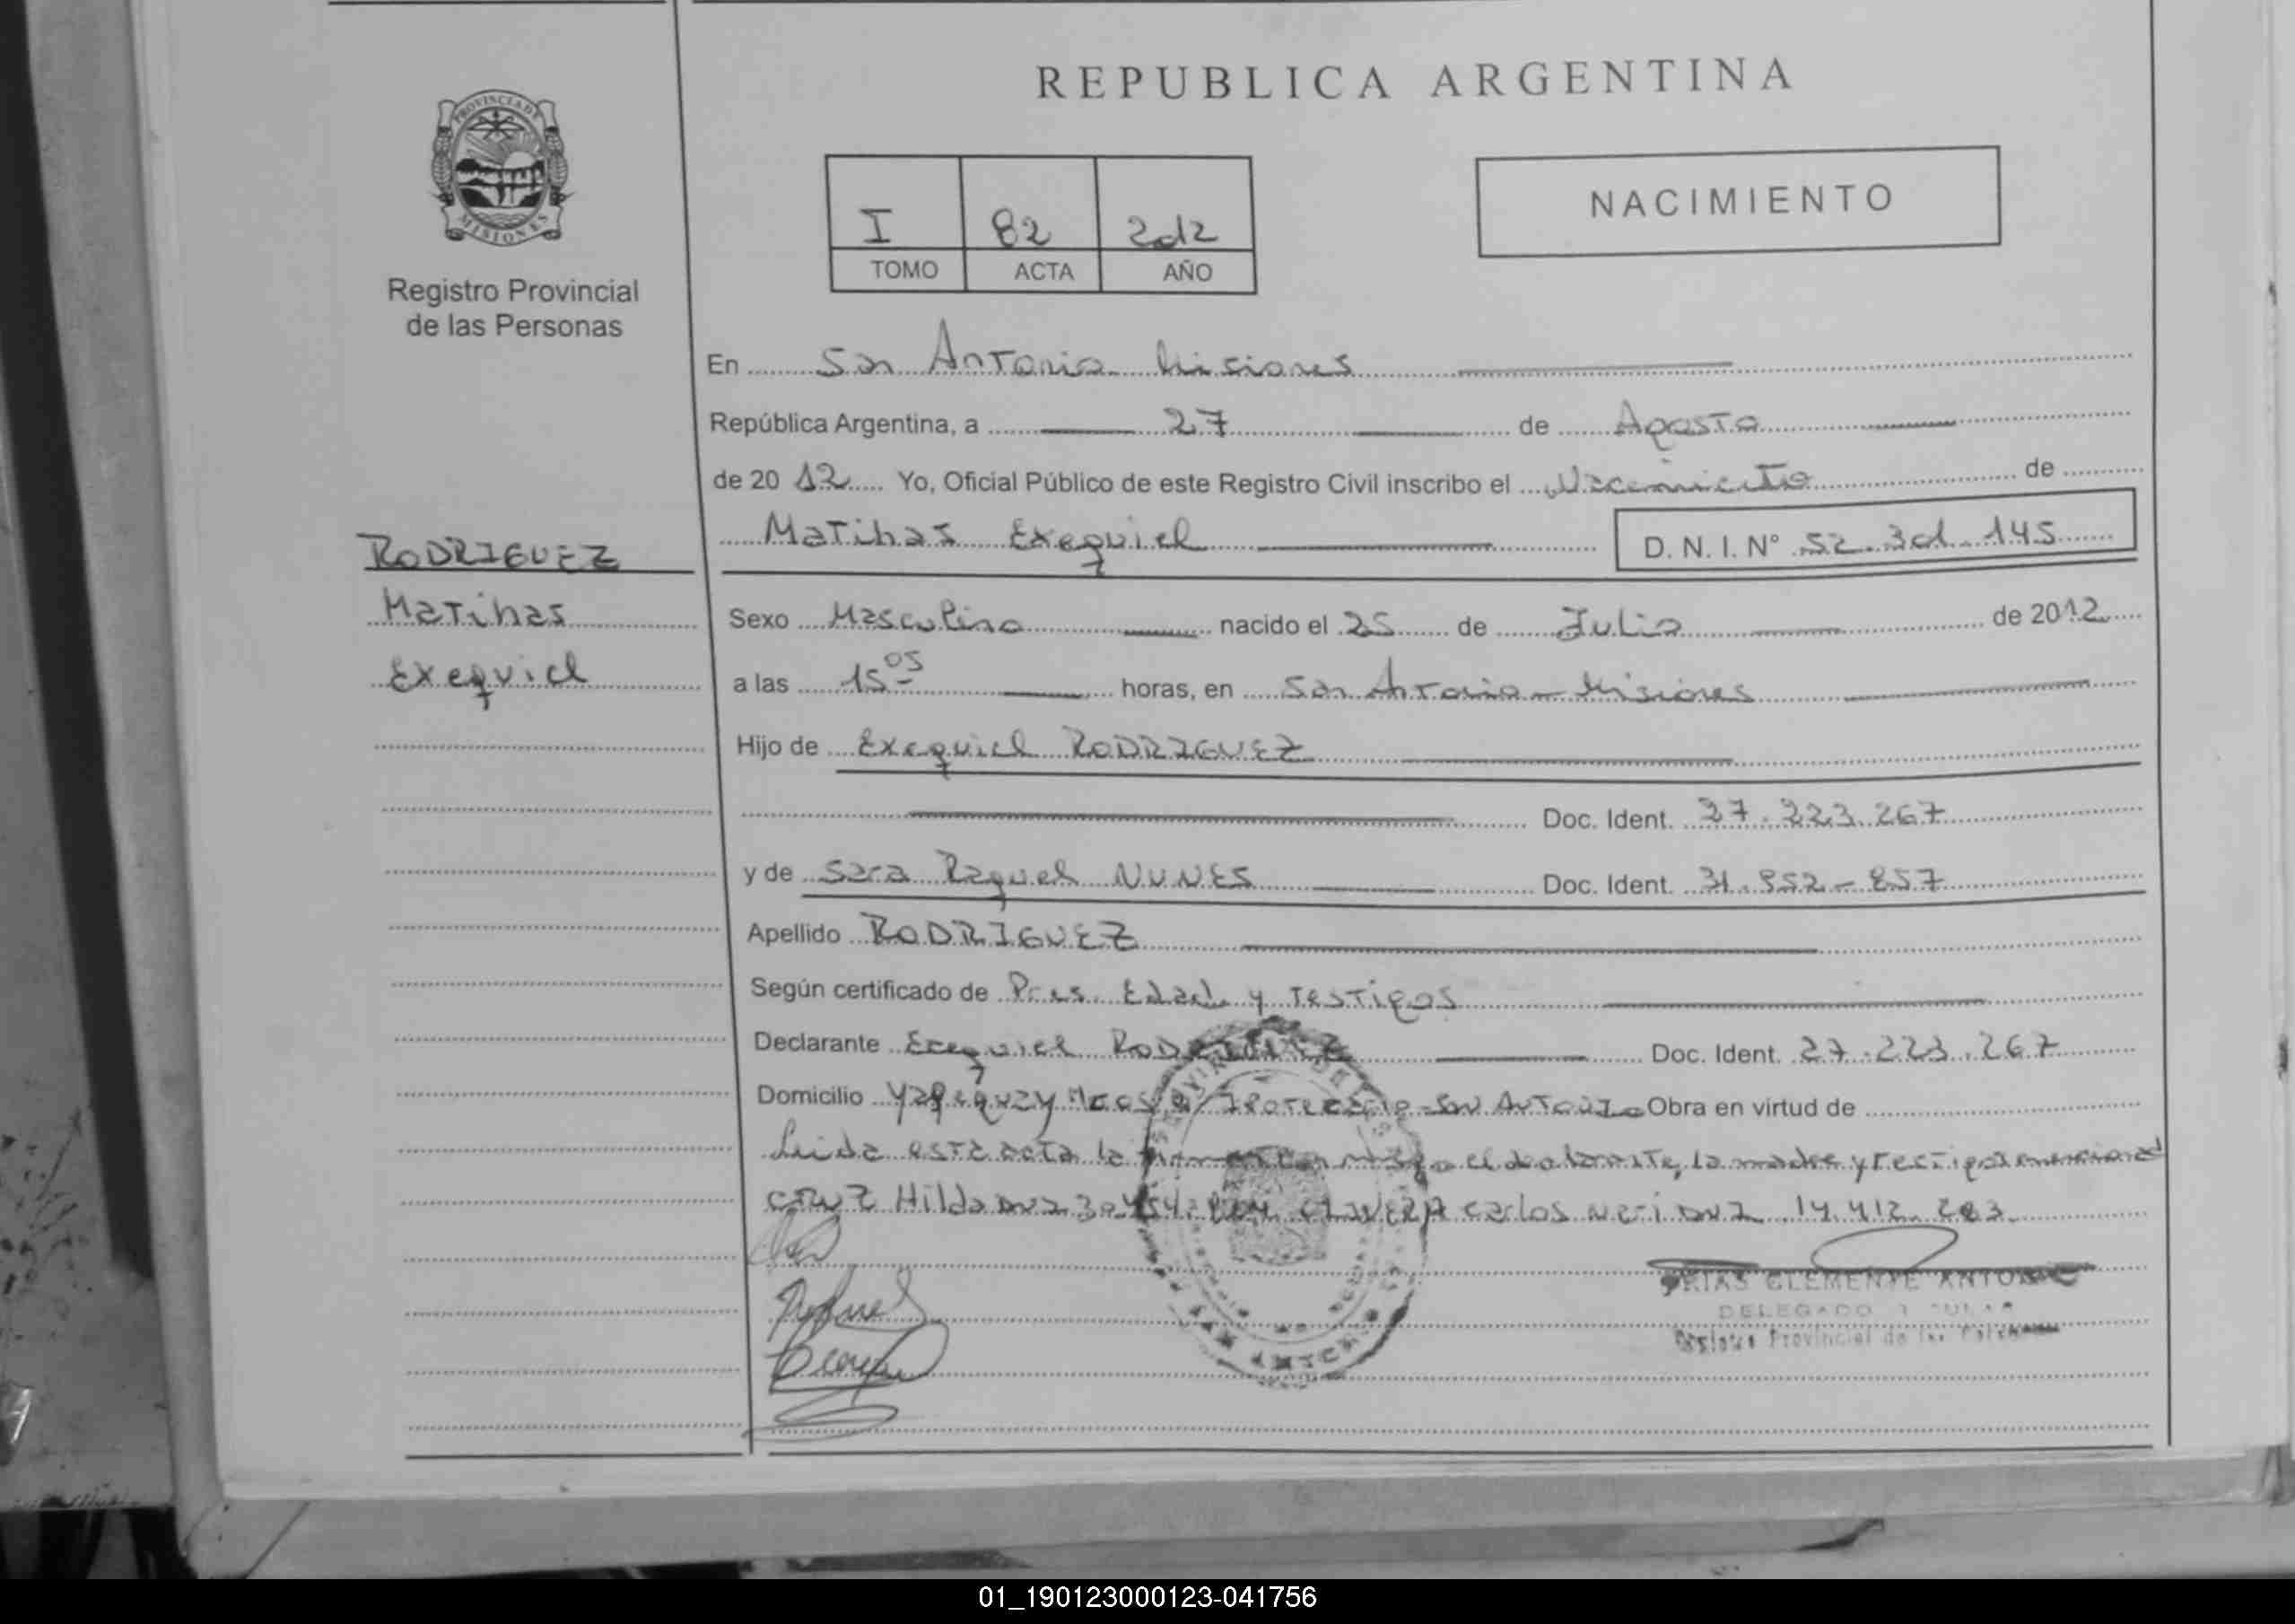 REPUBLICA ARGENTINA
PROVINCIA DE
MISIONES
Registro Provincial
de las Personas
I 82 2012
TOMO ACTA AÑO
NACIMIENTO
En San Antonio Misiones
República Argentina, a 27 de Agosto
de 2012 Yo, Oficial Público de este Registro Civil inscribo el Nacimiento de
Matihas Exequiel D. N. I. N° 52.301.145
RODRIGUEZ
Matihas
Exequiel
Sexo Masculino nacido el 25 de Julio de 2012
a las 15 05 horas, en San Antonio - Misiones
Hijo de Exequiel RODRIGUEZ
Doc. Ident. 27.223.267
y de Sara Raquel NUNES Doc. Ident. 31.952-857
Apellido RODRIGUEZ
Según certificado de Pres. Edad y Testigos
Declarante Exequiel RODRIGUEZ Doc. Ident. 27.223.267
Domicilio San Antonio Obra en virtud de
Leida esta acta la firman conmigo el declarante, la madre y testigos
Hilda DNI Carlos DNI 14.412.
CLEMENTE ANTONIO
DELEGADO
Registro Provincial de las Personas
01_190123000123-041756